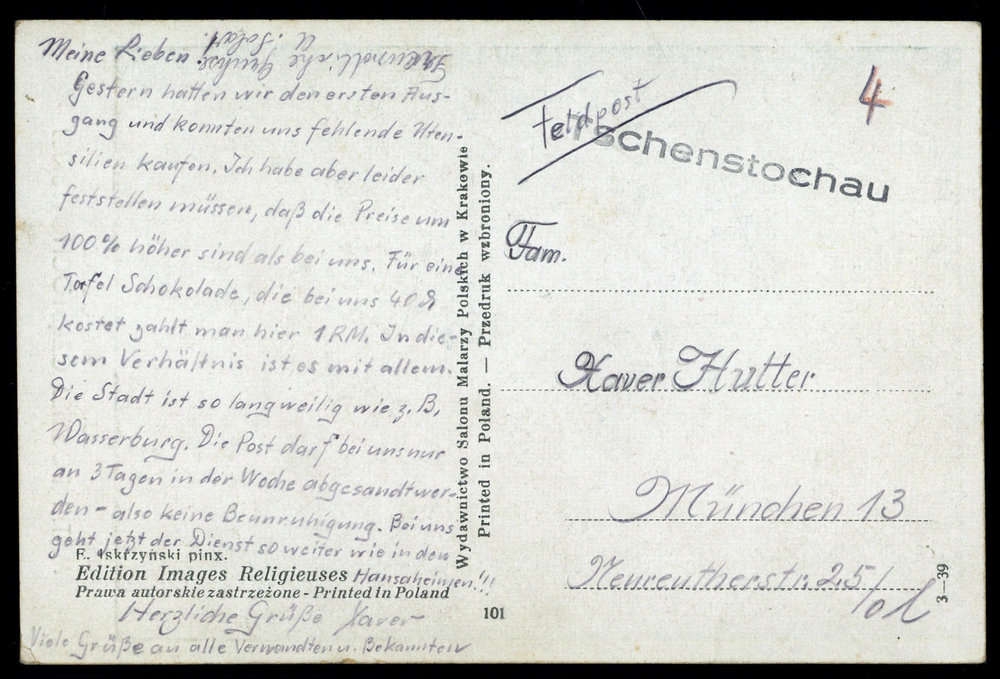 Meine Lieben!
Gestern hatten wir den ersten Aus-
gang und konnten uns fehlende Uten-
silien kaufen. Ich habe aber leider
feststellen müssen, daß die Preise um
100% höher sind als bei uns. Für eine
Tafel Schokolade, die bei uns 40 ₰
kostet zahlt man hier 1 RM. In die-
sem Verhältnis ist es mit allem.
Die Stadt ist so langweilig wie z. B.
Wasserburg. Die Post darf bei uns nur
an 3 Tagen in der Woche abgesandt wer-
den - also keine Beunruhigung. Bei uns
geht jetzt der Dienst so weiter wie in den
Hansaheimen!!!
Herzliche Grüße Xaver
Viele Grüße an alle Verwandten u. Bekannten
Grüße
E. Iskrzyński pinx.
Edition Images Religieuses
Prawa autorskie zastrzeżone - Printed in Poland
101
Wydawnictwo Salonu Malarzy Polskich w Krakowie
Printed in Poland. — Przedruk wzbroniony.
4
Feldpost
Tschenstochau
Fam.
Xaver Hutter
München 13
Neureutherstr. 25/
3-39